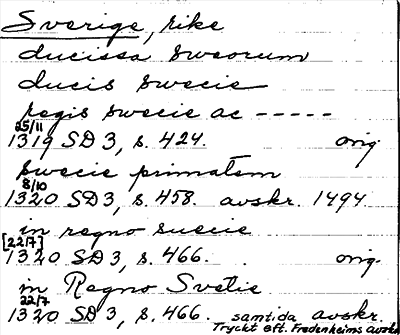 Sverige, rike
ducissa sweorum
ducis swecie
regis swecie ac -----
25/11
1319 SD 3, s. 424. orig.
swecie primatem
8/10
1320 SD 3, s. 458. avskr. 1494.
in regno suecie
[22/7]
1320 SD 3, s. 466. orig.
in Regno Svetie
22/7
1320 SD 3, s. 466. samtida avskr.
Tryckt eft. Fredenheims avskr.